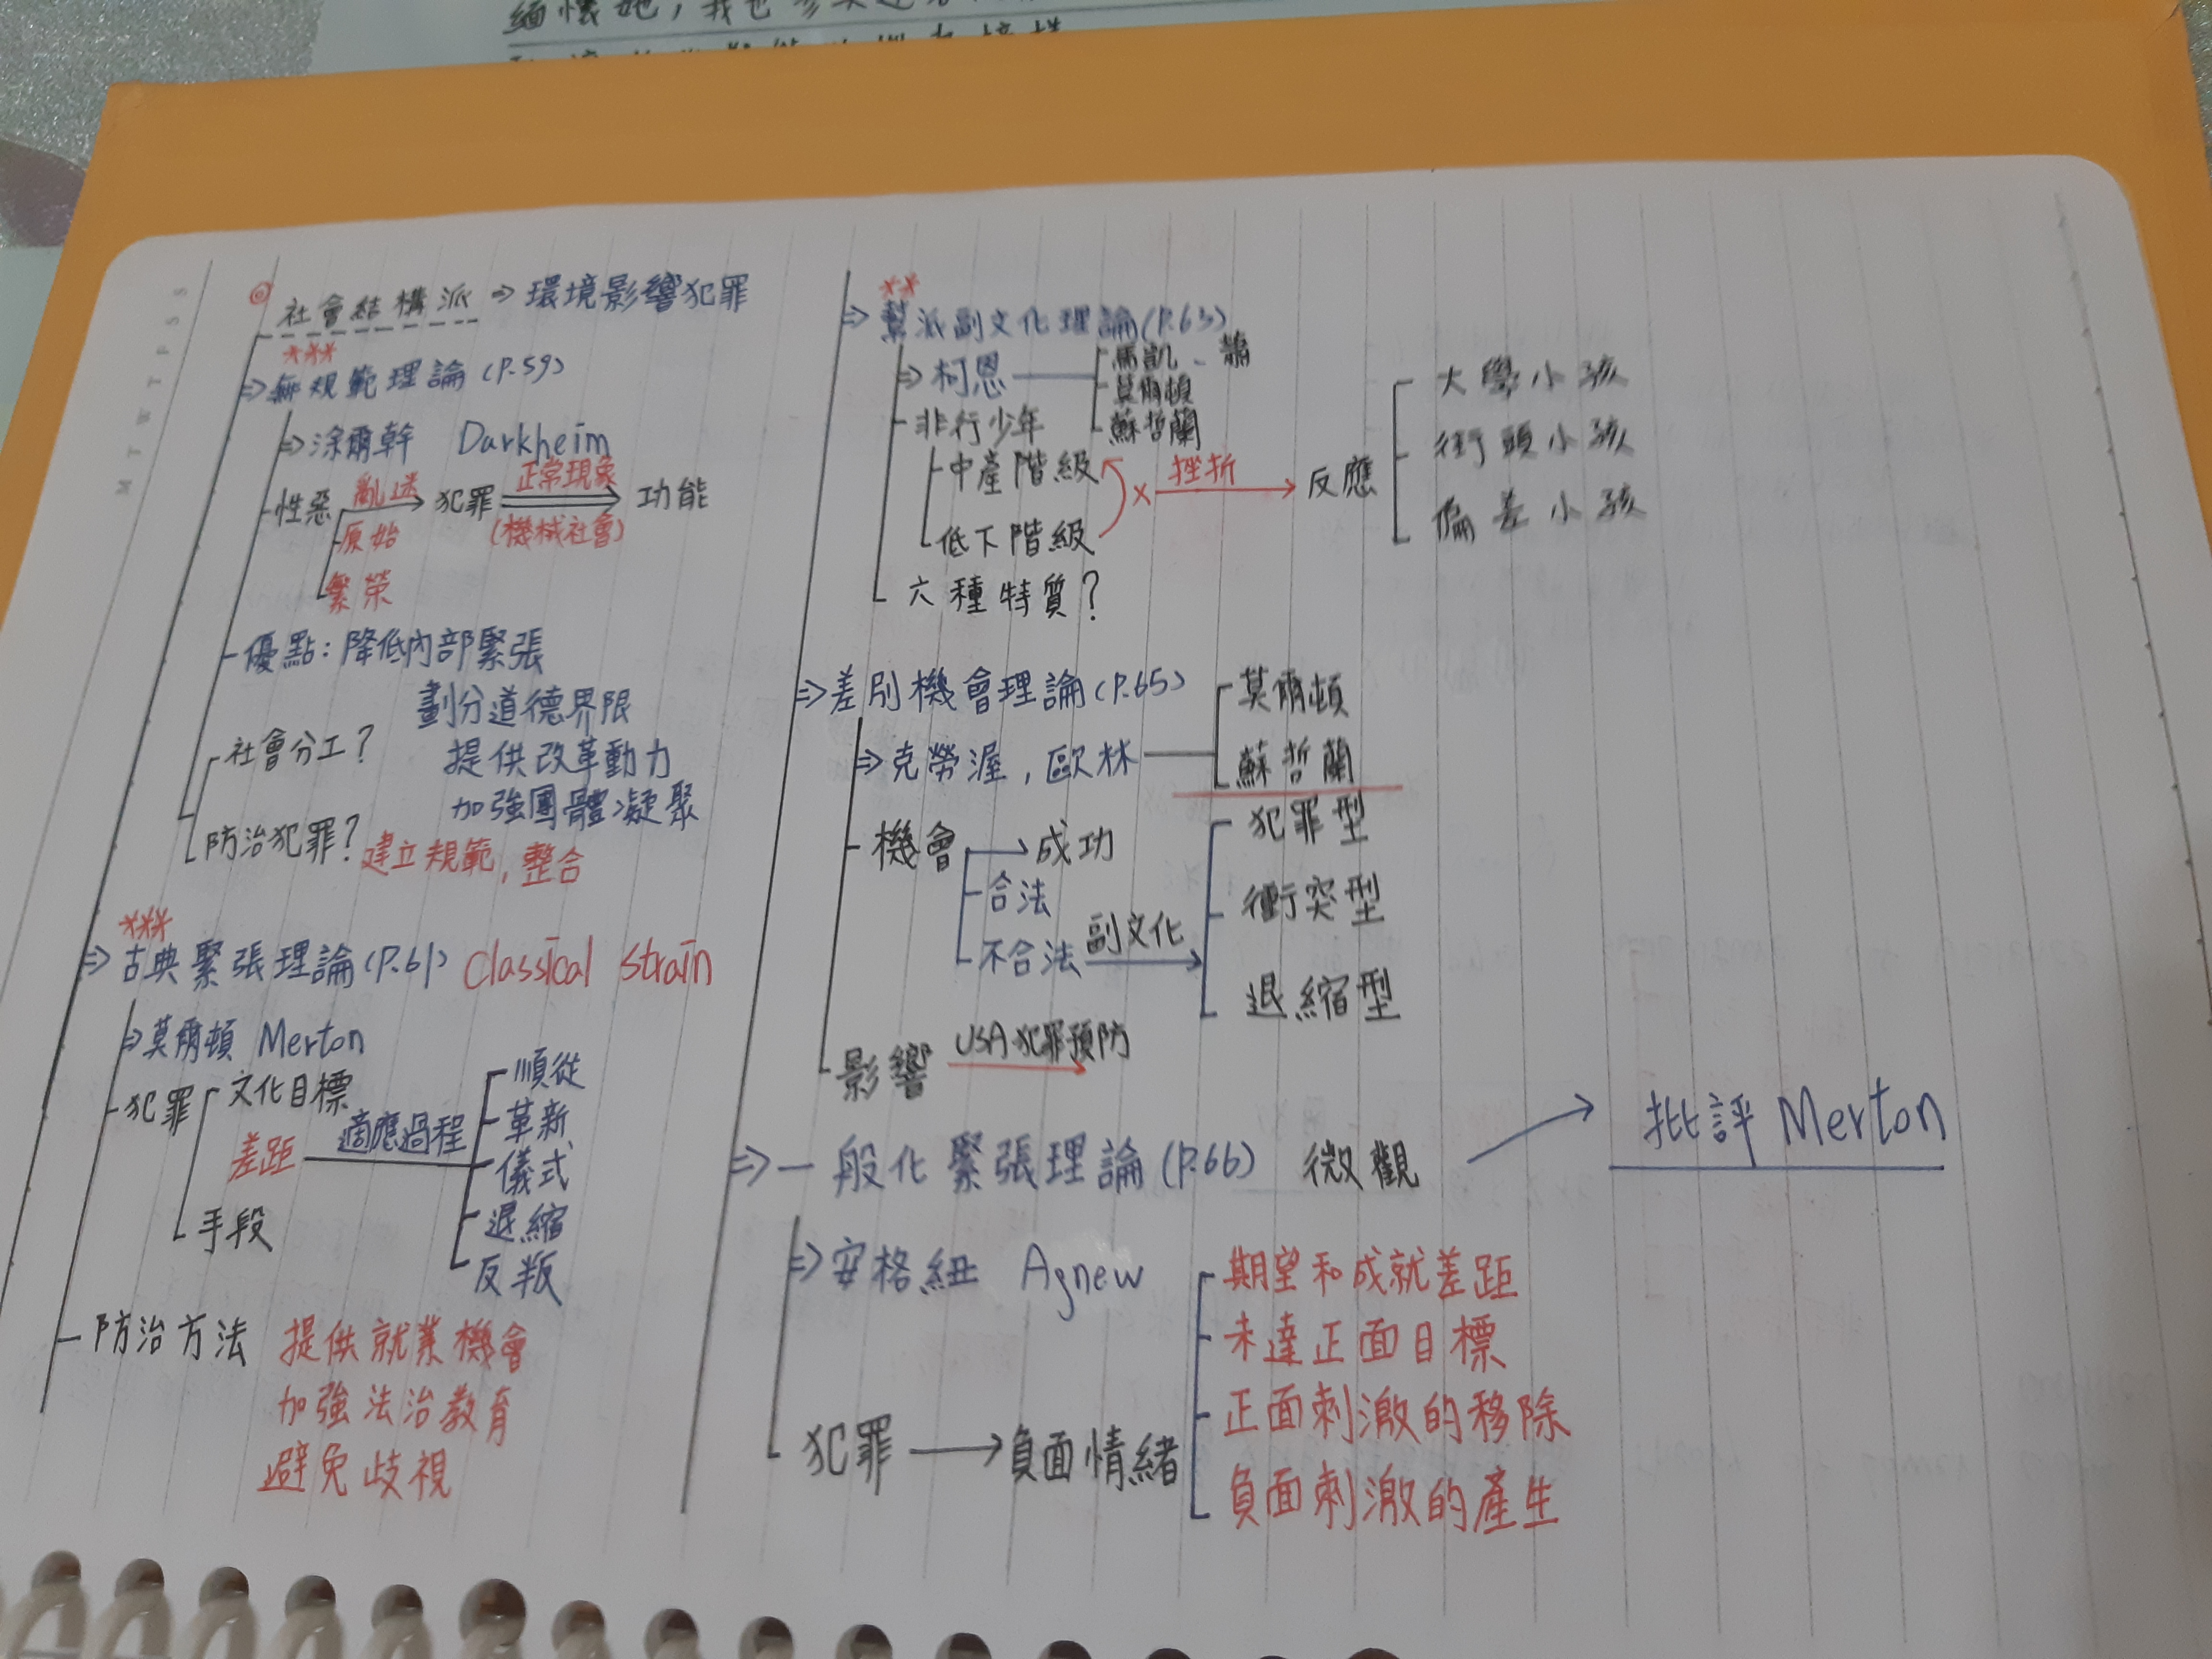 緬懷她,我也
M T W T F S S
社會結構派 ⇒ 環境影響犯罪
***
⇒無規範理論(P.59)
⇒涂爾幹 Darkheim
性惡 亂迷 犯罪 正常現象 功能
原始 (機械社會)
繁榮
優點:降低內部緊張
劃分道德界限
社會分工?
提供改革動力
加強團體凝聚
防治犯罪? 建立規範,整合
***
⇒古典緊張理論(P.61) Classical Strain
⇒莫爾頓 Merton
犯罪 文化目標
差距 適應過程
手段
順從
革新
儀式
退縮
反叛
防治方法 提供就業機會
加強法治教育
避免歧視
**
⇒幫派副文化理論(P.63)
⇒柯恩
馬凱、蕭
莫爾頓
蘇哲蘭
非行少年
中產階級
低下階級
× 挫折 反應
大學小孩
街頭小孩
偏差小孩
六種特質?
⇒差別機會理論(P.65)
⇒克勞渥,歐林
莫爾頓
蘇哲蘭
機會 成功
合法
不合法 副文化
犯罪型
衝突型
退縮型
影響 USA犯罪預防
⇒一般化緊張理論(P.66) 微觀 批評 Merton
⇒安格紐 Agnew
犯罪 負面情緒
期望和成就差距
未達正面目標
正面刺激的移除
負面刺激的產生